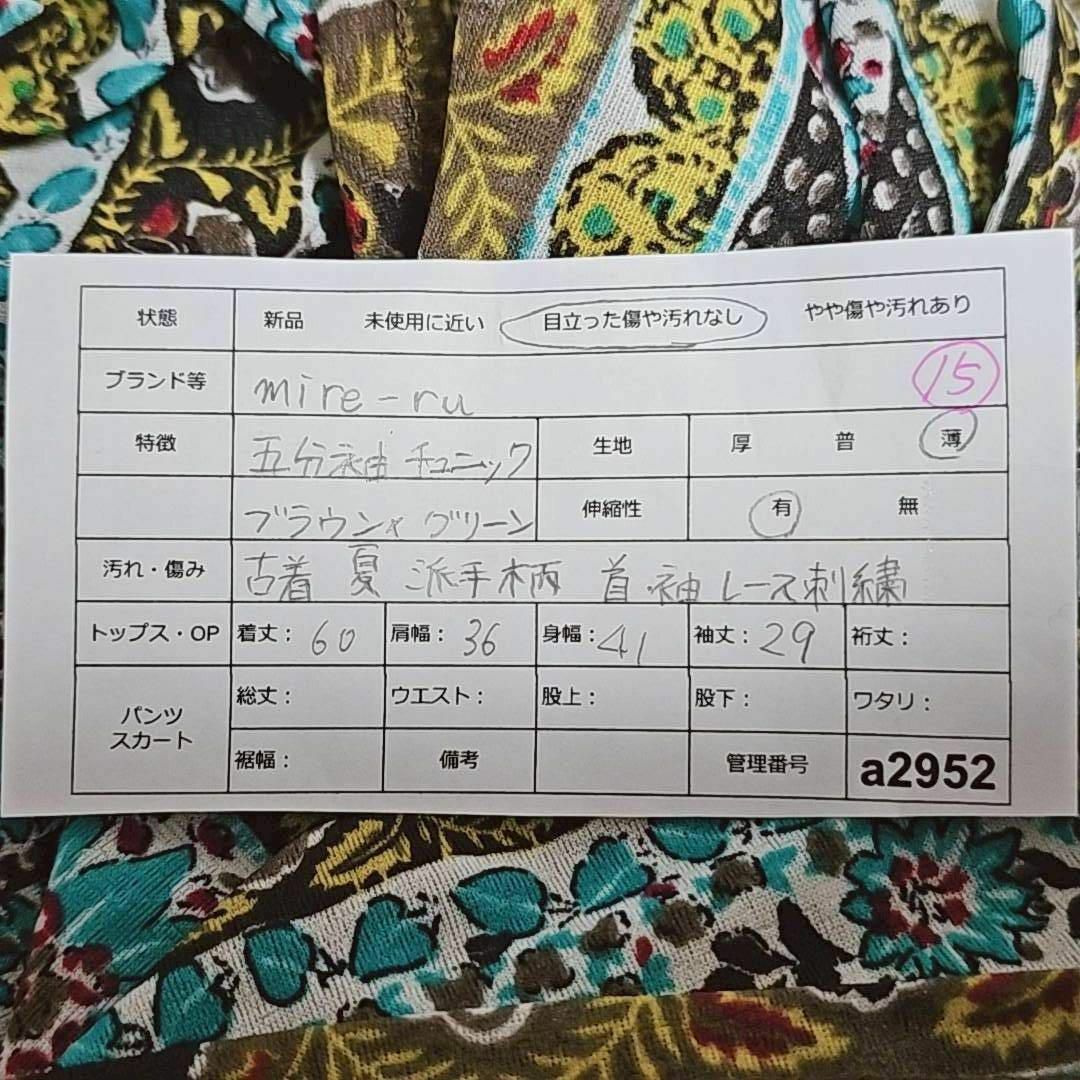 状態 新品 未使用に近い 目立った傷や汚れなし やや傷や汚れあり
ブランド等 mire-ru 15
特徴 五分袖 チュニック 生地 厚 普 薄
ブラウン×グリーン 伸縮性 有 無
汚れ・傷み 古着 夏 派手柄 首 袖 レース刺繍
トップス・OP 着丈: 60 肩幅: 36 身幅: 41 袖丈: 29 裄丈:
パンツ スカート 総丈: ウエスト: 股上: 股下: ワタリ:
裾幅: 備考 管理番号 a2952